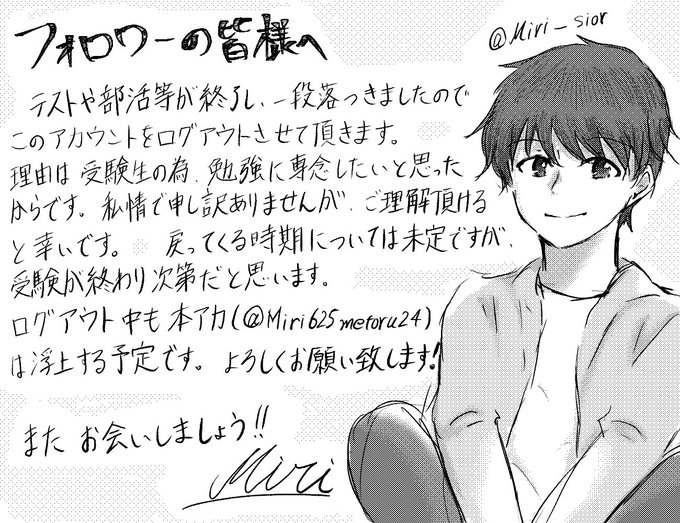 フォロワーの皆様へ
@Miri_sior
テストや部活等が終了し、一段落つきましたので
このアカウントをログアウトさせて頂きます。
理由は受験生の為、勉強に専念したいと思った
からです。私情で申し訳ありませんが、ご理解頂ける
と幸いです。 戻ってくる時期については未定ですが、
受験が終わり次第だと思います。
ログアウト中も本アカ(@Miri625metoru24)
は浮上する予定です。よろしくお願い致します!
また お会いしましょう!!
Miri